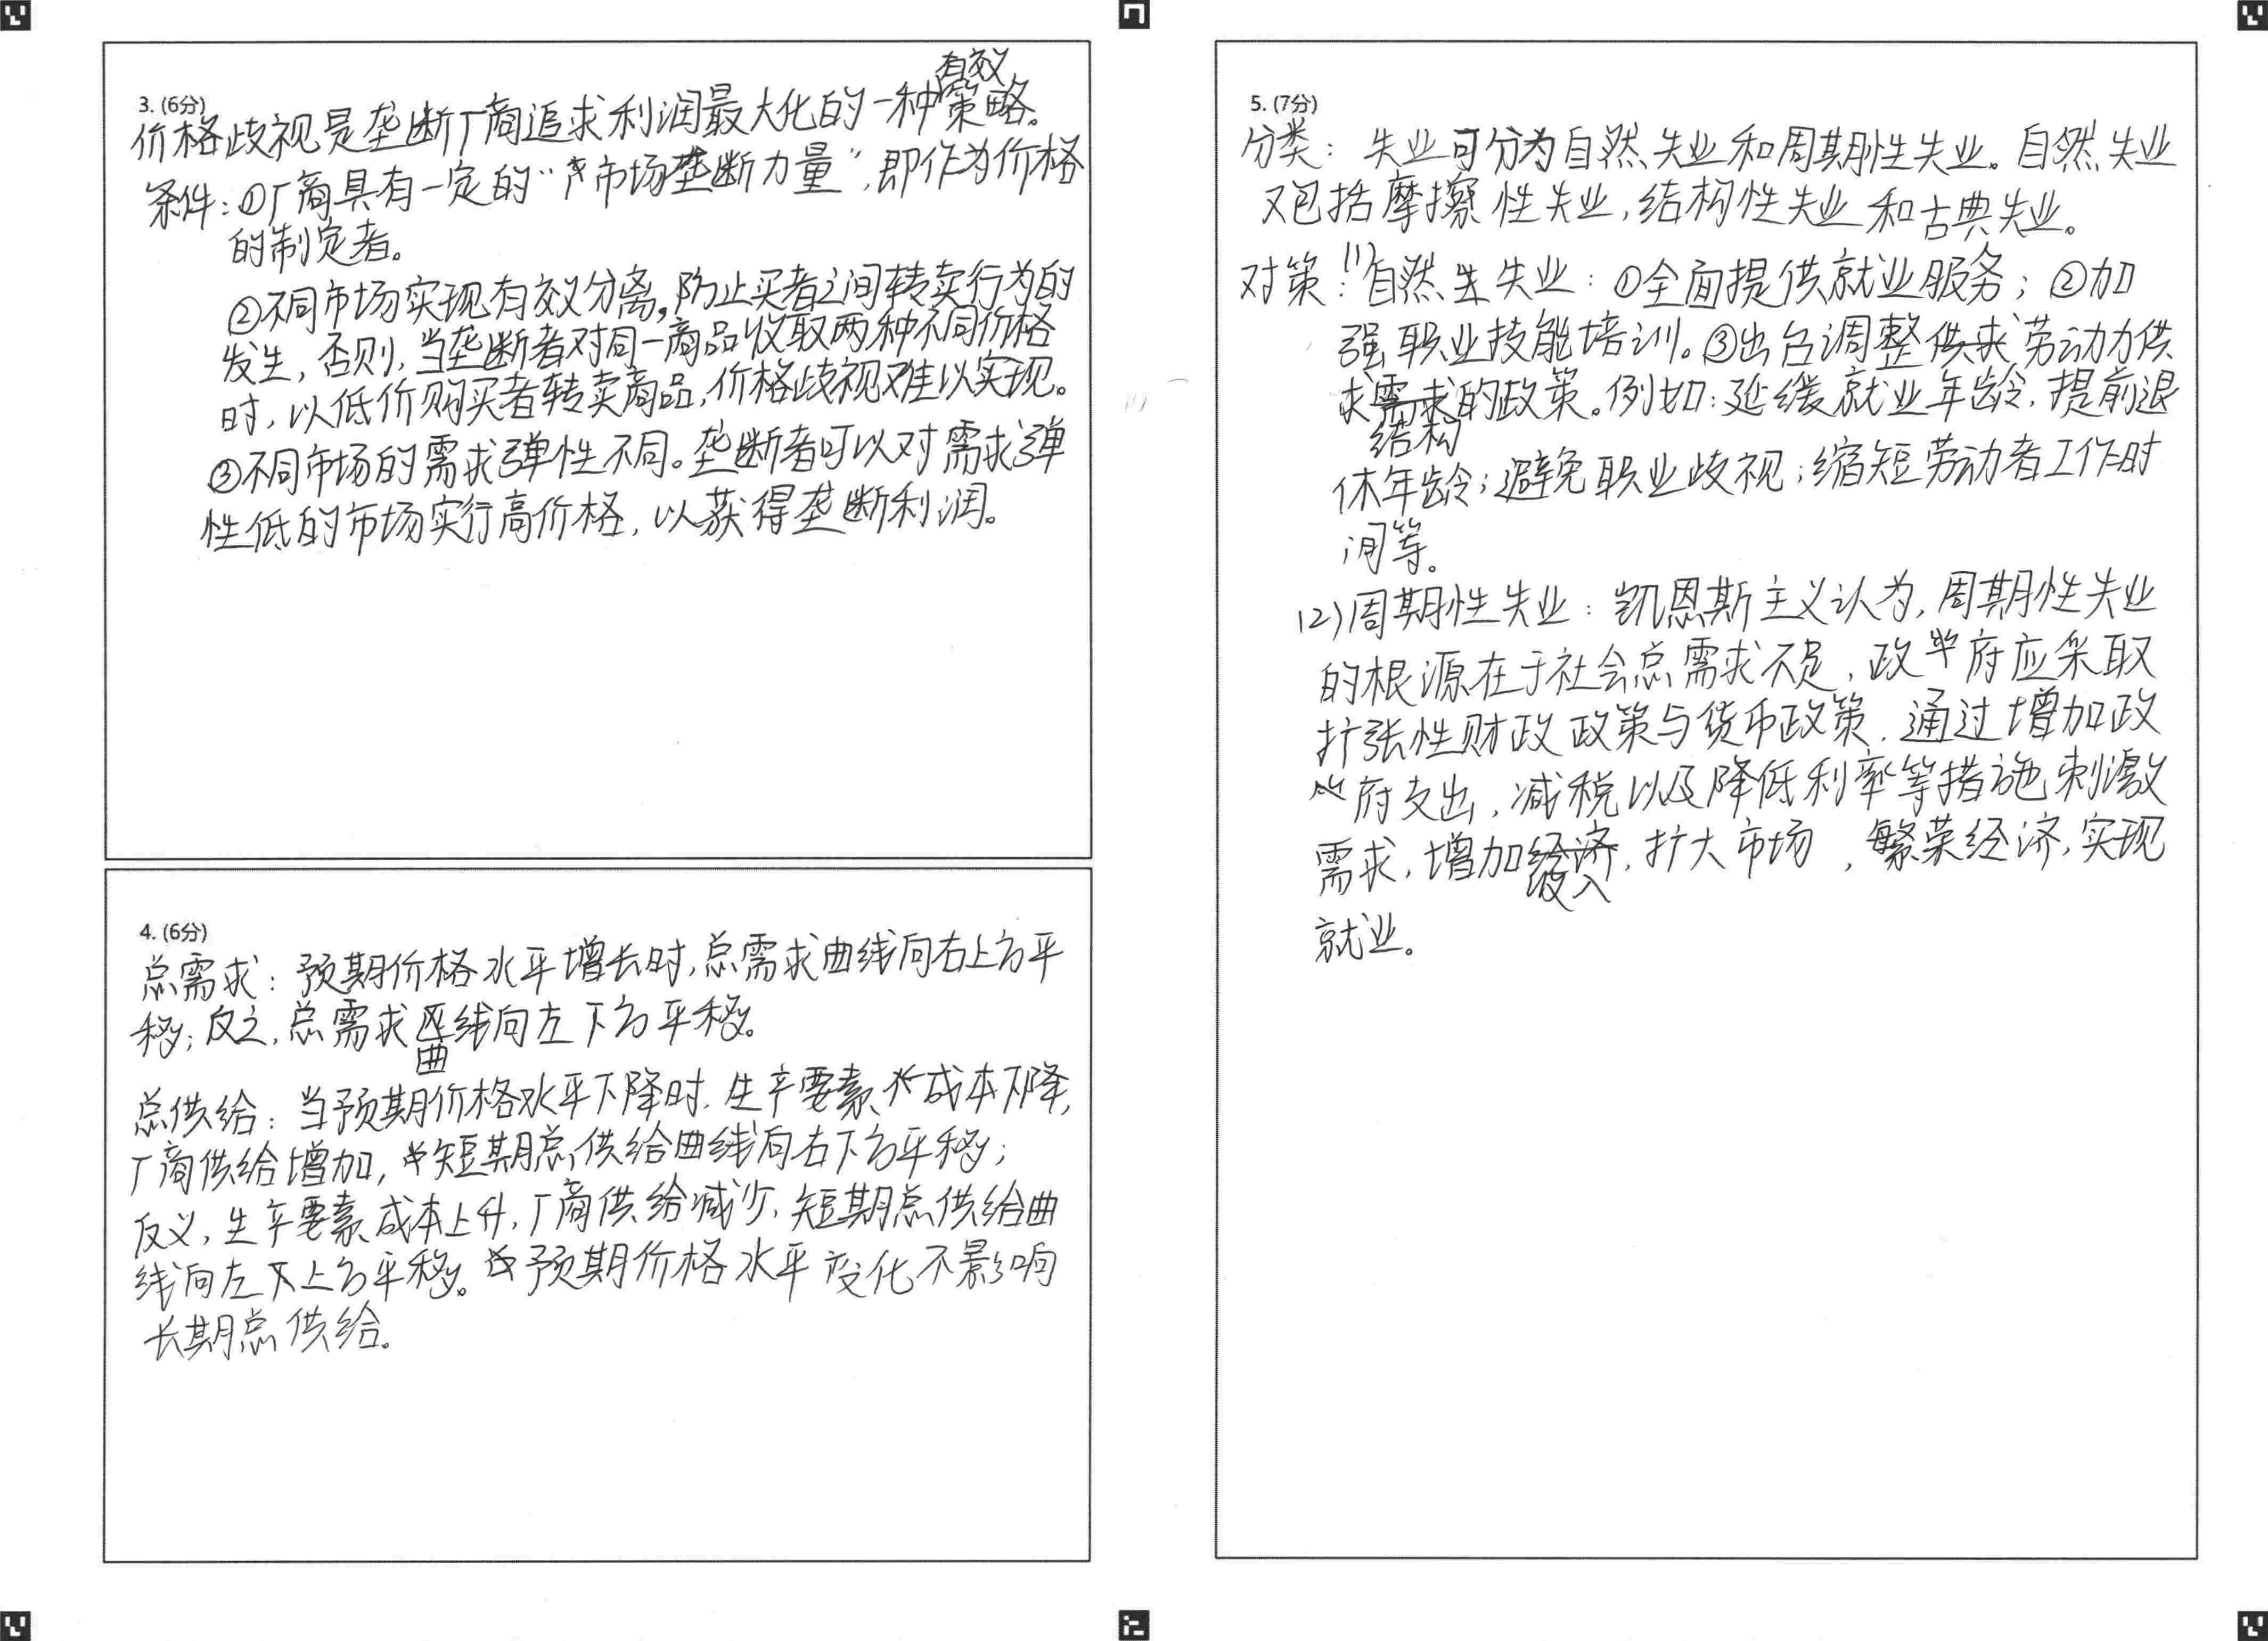 3. (6分)
价格歧视是垄断厂商追求利润最大化的一种有效策略。
条件：①厂商具有一定的“市场垄断力量”，即作为价格
的制定者。
②不同市场实现有效分离，防止买者之间转卖行为的
发生，否则，当垄断者对同一商品收取两种不同价格
时，以低价购买者转卖商品，价格歧视难以实现。
③不同市场的需求弹性不同。垄断者可以对需求弹
性低的市场实行高价格，以获得垄断利润。
4. (6分)
总需求：预期价格水平增长时，总需求曲线向右上方平
移；反之，总需求曲线向左下方平移。
总供给：当预期价格水平下降时，生产要素成本下降，
厂商供给增加，短期总供给曲线向右下方平移；
反义，生产要素成本上升，厂商供给减少，短期总供给曲
线向左上方平移。预期价格水平变化不影响
长期总供给。
5. (7分)
分类：失业可分为自然失业和周期性失业。自然失业
又包括摩擦性失业，结构性失业和古典失业。
对策：(1)自然失业：①全面提供就业服务；②加
强职业技能培训。③出台调整劳动力供
求结构的政策。例如：延缓就业年龄，提前退
休年龄；避免职业歧视；缩短劳动者工作时
间等。
(2)周期性失业：凯恩斯主义认为，周期性失业
的根源在于社会总需求不足，政府应采取
扩张性财政政策与货币政策，通过增加政
府支出，减税以及降低利率等措施刺激
需求，增加投入，扩大市场，繁荣经济，实现
就业。